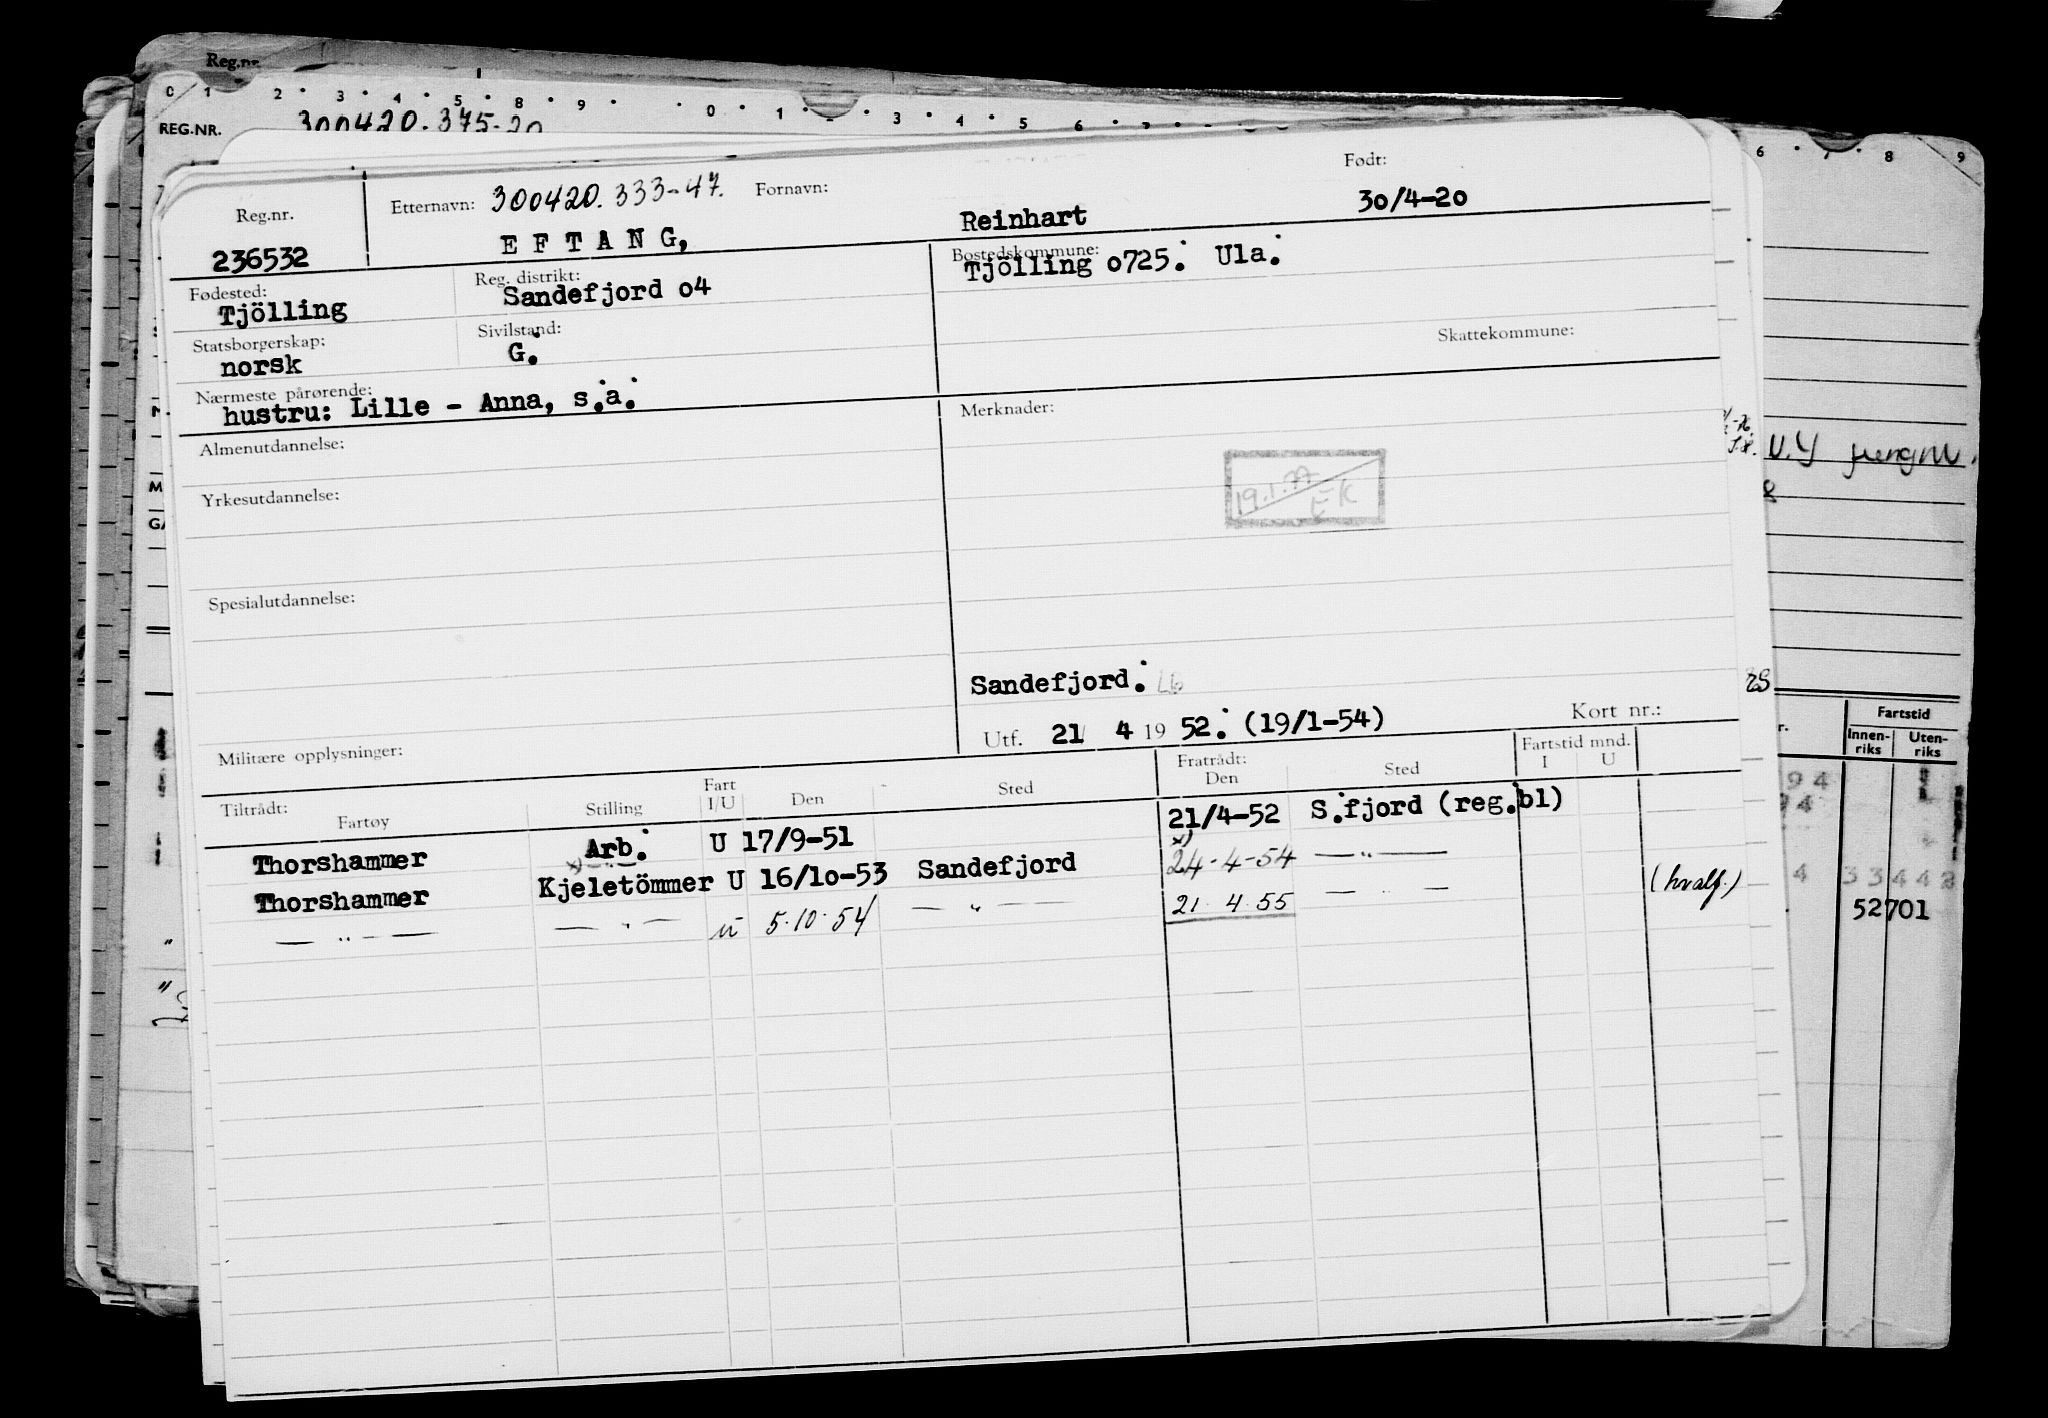 Reg.nr.
0 1 2 3 4 5 8 9 0 1 2 3 4 5 6 7 8 9
REG.NR. 300420.375-20
Reg.nr. Etternavn: 300420.333-47. Fornavn: Født:
236532 E F T A N G, Reinhart 30/4-20
Fødested: Reg. distrikt: Bostedskommune:
Tjölling Sandefjord o4 Tjölling o725. Ula.
Statsborgerskap: Sivilstand: Skattekommune:
norsk G.
Nærmeste pårørende:
hustru: Lille - Anna, s.a.
Almenutdannelse: Merknader:
19.1.77 EK
Yrkesutdannelse:
Spesialutdannelse:
Sandefjord. Lb
Utf. 21 4 19 52. (19/1-54) Kort nr.:
Militære opplysninger:
Tiltrådt: Fart Fratrådt: Fartstid mnd.
Fartøy Stilling I/U Den Sted Den Sted I U
Thorshammer Arb. U 17/9-51 21/4-52 S.fjord (reg.bl)
Thorshammer x) Kjeletömmer U 16/1o-53 Sandefjord x) 24-4-54 — " —
— " — — " — u 5.10.54 — " — 21.4.55 — " — (hvalf.)
Fartstid
Innen-riks Uten-riks
52701